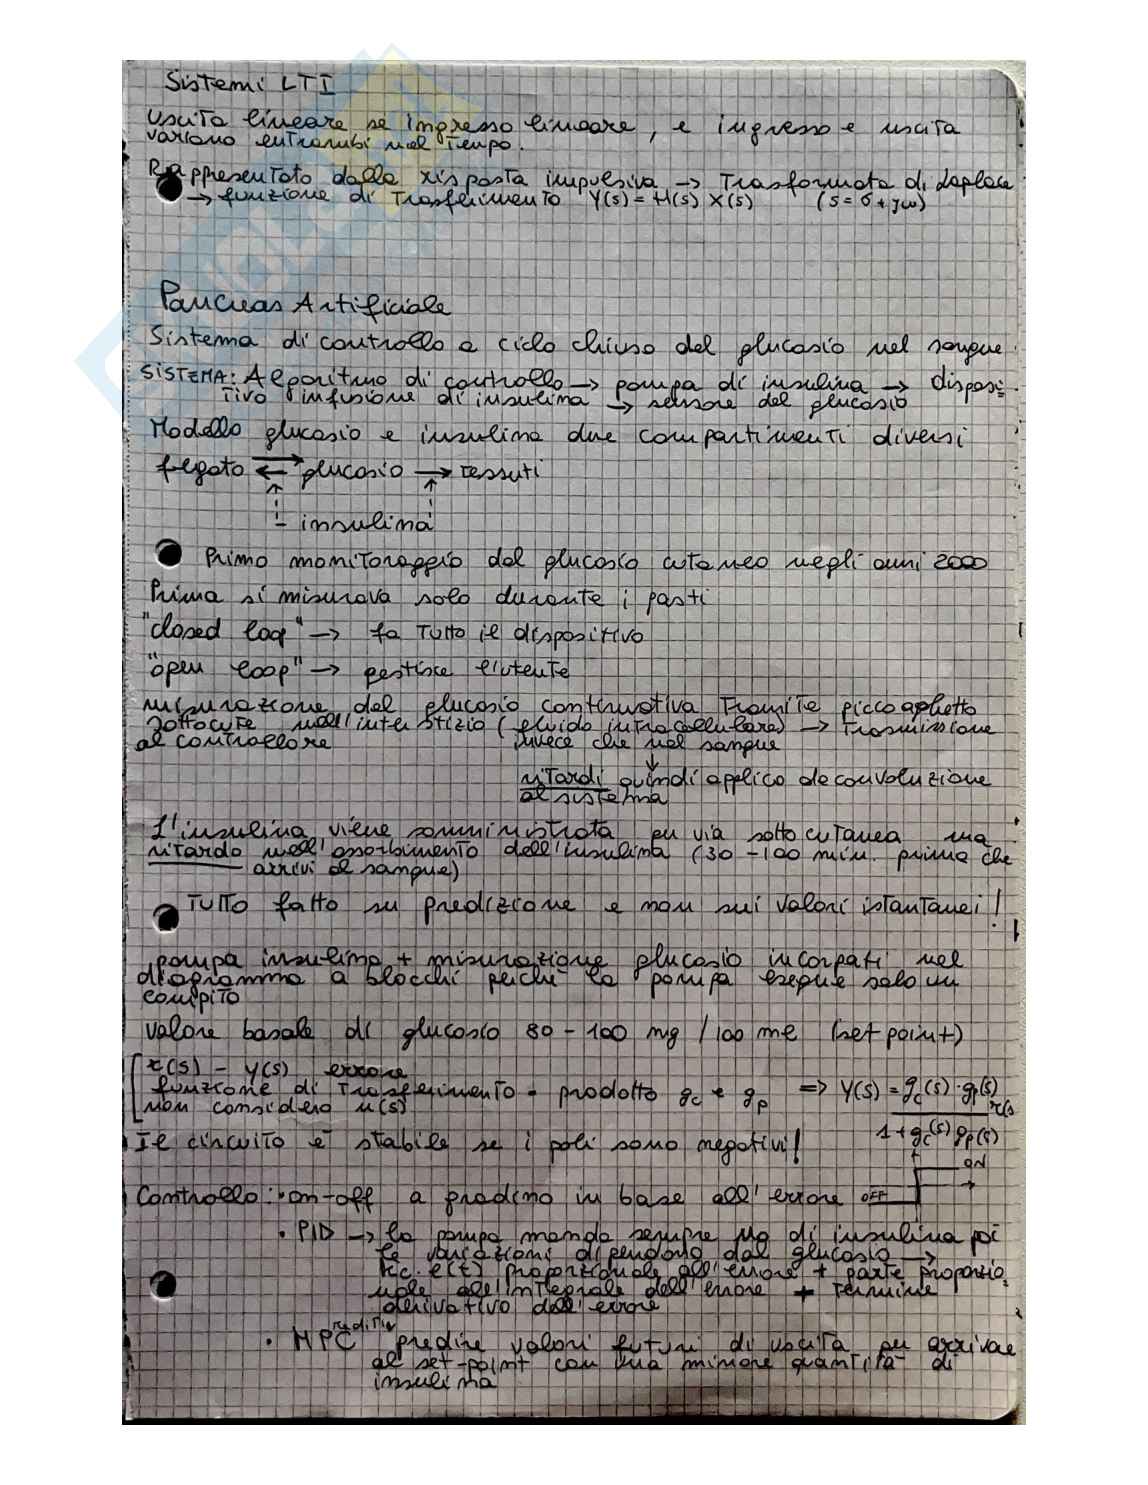 Sistemi LTI
Uscita lineare se ingresso lineare, e ingresso e uscita
variano entrambi nel tempo.
Rappresentato dalla risposta impulsiva → Trasformata di Laplace
→ funzione di Trasferimento Y(s) = H(s) X(s) (s = σ + jω)
Pancreas Artificiale
Sistema di controllo a ciclo chiuso del glucosio nel sangue.
SISTEMA: Algoritmo di controllo → pompa di insulina → disposi
tivo infusione di insulina → sensore del glucosio
Modello glucosio e insulina due compartimenti diversi
fegato ⇄ glucosio → tessuti
insulina
Primo monitoraggio del glucosio cutaneo negli anni 2000
Prima si misurava solo durante i pasti
"closed loop" → fa tutto il dispositivo
"open loop" → gestisce l'utente
misurazione del glucosio continuativa Tramite piccoaghetto
sottocute nell'interstizio (fluido intracellulare) → Trasmissione
al controllore invece che nel sangue
ritardi quindi applico deconvoluzione
al sistema
L'insulina viene somministrata per via sottocutanea ma
ritardo nell'assorbimento dell'insulina (30-100 min. prima che
arrivi al sangue)
TUTTO fatto su predizione e non sui valori istantanei!
pompa insulina + misurazione glucosio incorpati nel
diagramma a blocchi perché la pompa esegue solo un
compito
valore basale di glucosio 80-100 mg/100 ml (set point)
r(s) - y(s) errore
funzione di Trasferimento = prodotto gc e gp ⇒ Y(s) = gc(s)·gp(s) r(s
non considero u(s) 1+gc(s)gp(s)
Il circuito è stabile se i poli sono negativi!
ON
Controllo: • on-off a gradino in base all'errore OFF
• PID → la pompa manda sempre μg di insulina poi
le variazioni dipendono dal glucosio →
kc·e(t) proporzionale all'errore + parte proporzio
nale all'integrale dell'errore + termine
derivativo dell'errore
• MPC predire valori futuri di uscita per arrivare
al set-point con una minore quantità di
insulina